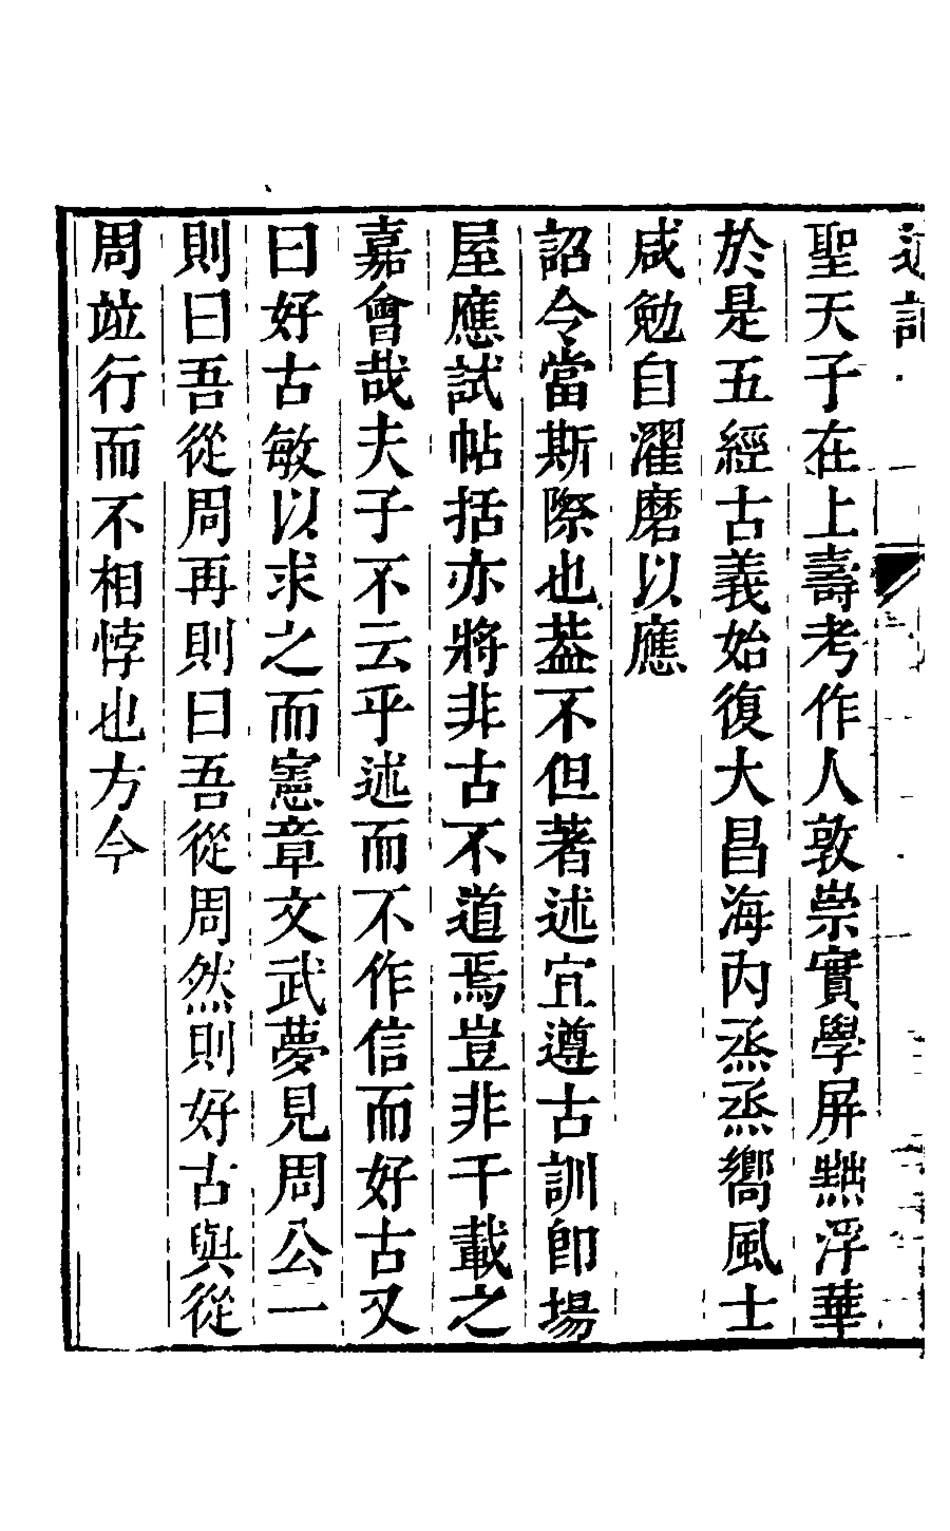 聖天子在上壽考作人敦崇實學屏黜浮華
於是五經古義始復大昌海內烝烝嚮風士
咸勉自濯磨以應
詔令當斯際也葢不但著述宜遵古訓卽場
屋應試帖括亦將非古不道焉豈非千載之
嘉會哉夫子不云乎述而不作信而好古又
曰好古敏以求之而憲章文武夢見周公一
則曰吾從周再則曰吾從周然則好古與從
周竝行而不相悖也方今